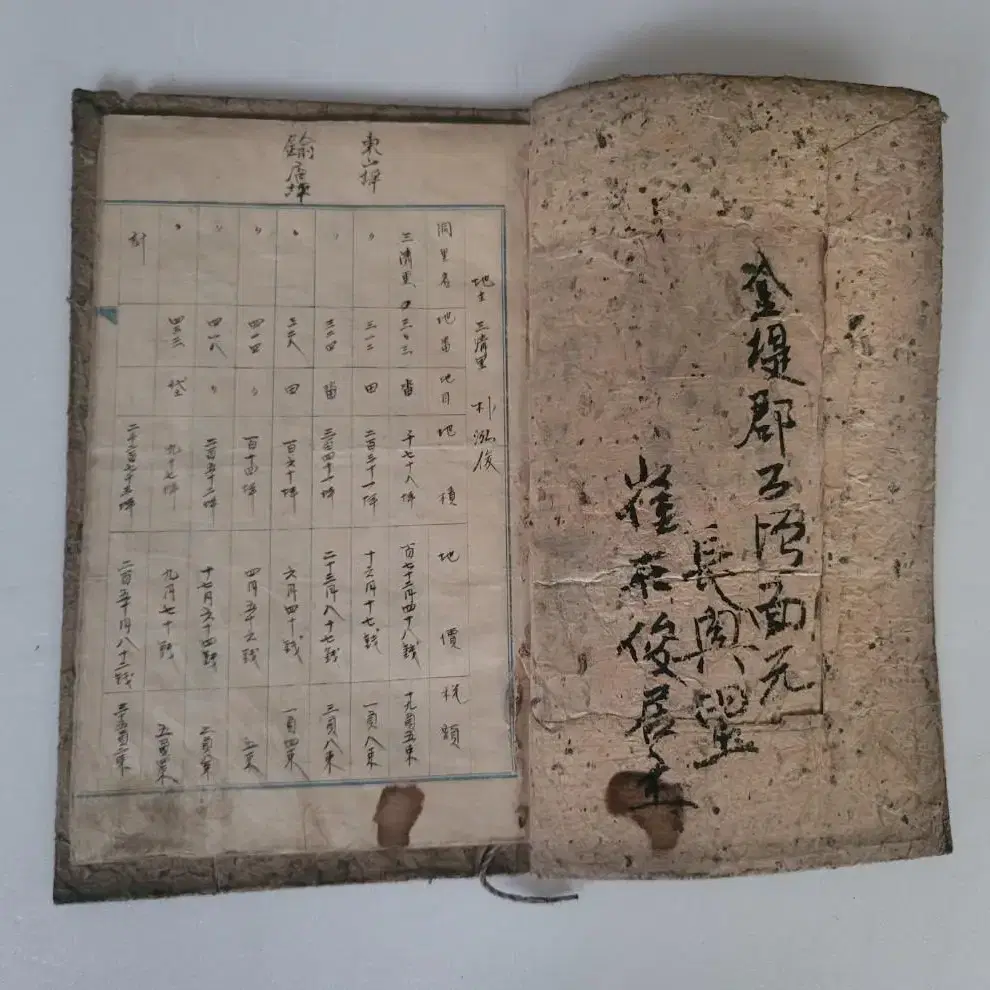 東山坪
店坪
地主 三清里 朴泓俊
洞里名 地番 地目 地積 地價 税額
三清里 三〇三 畓 千七十八坪 百七十二円四十八戋 十九負五束
〃 三一二 田 二百三十一坪 十六円十七戋 一負八束
〃 三二四 畓 三百四十一坪 二十三円八十七戋 三負八束
〃 三二八 田 百六十坪 六円四十戋 一負四束
〃 四一四 〃 百十四坪 四円五十六戋
〃 四一八 〃 二百五十二坪 十七円六十四戋
〃 四三三 垈 九十七坪 九円七十戋
計 二千二百七十三坪 二百五十円八十二戋
金堤郡 面元
長興
崔在俊居士